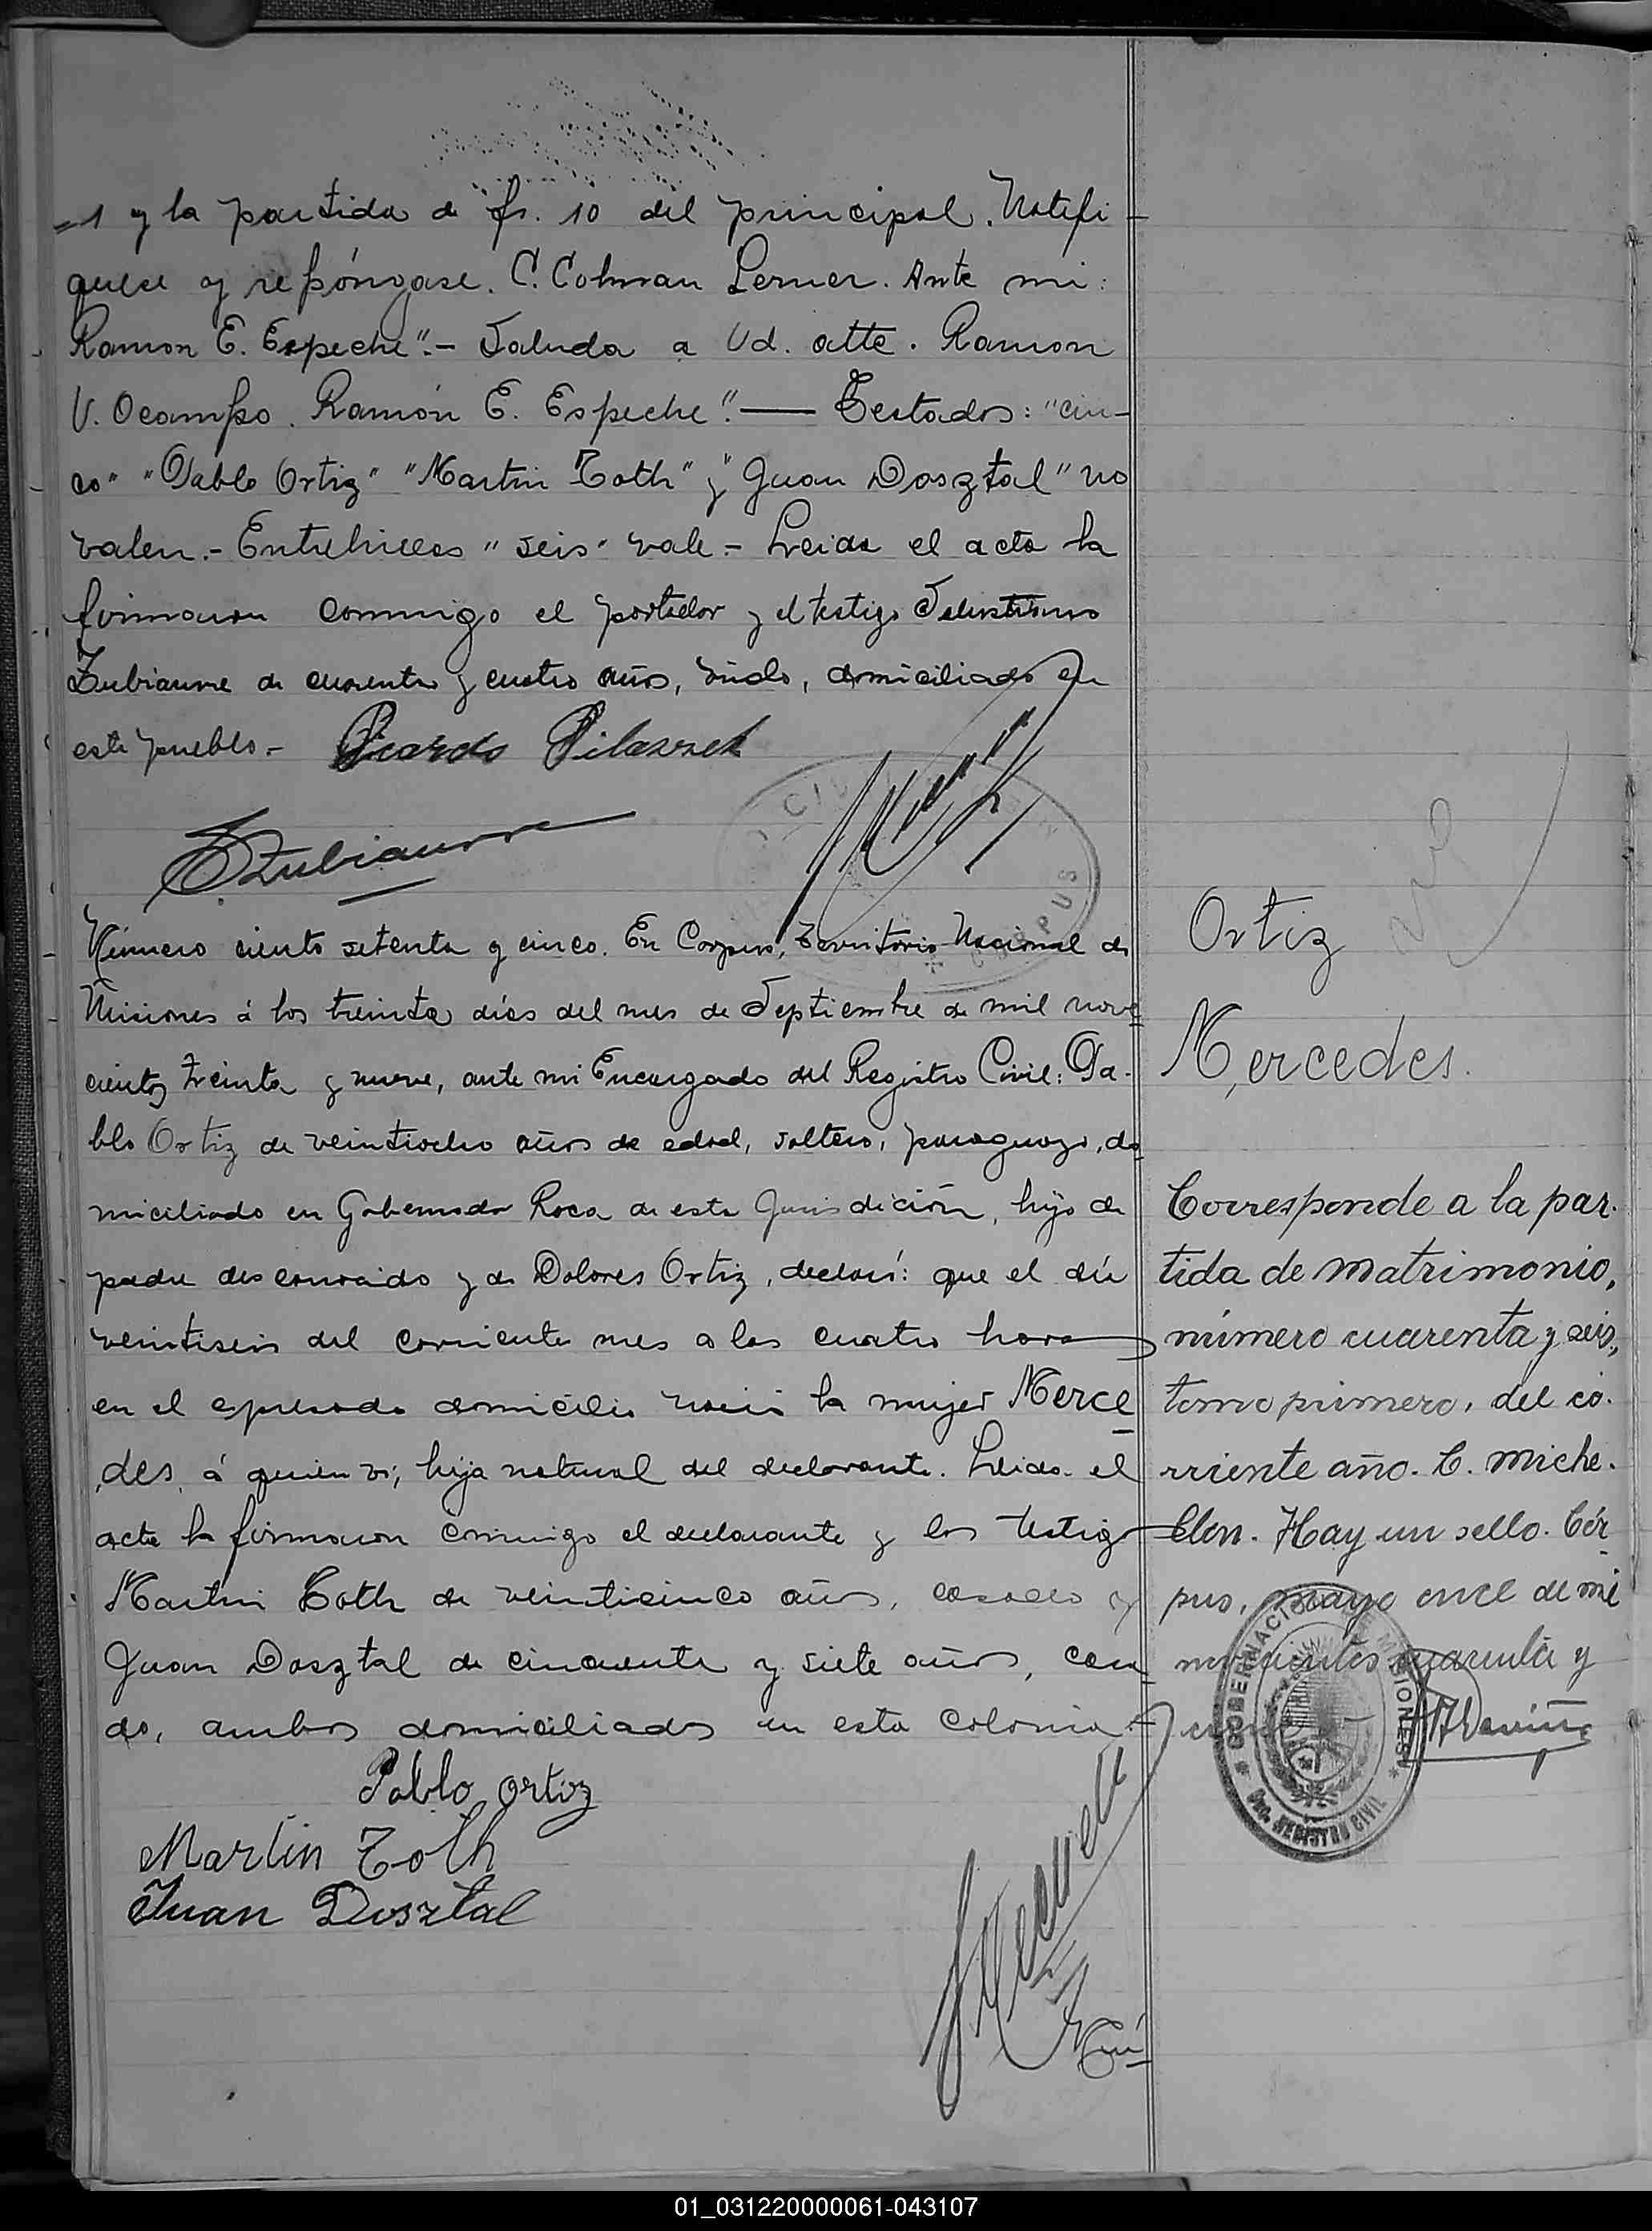 =1 y la partida de fs. 10 del principal. Notifi-
quese y repóngase. C. Colman Lerner. Ante mi:
Ramon E. Espeche".- Saluda a Ud. atte. Ramon
V. Ocampo. Ramón E. Espeche".— Testados: "cin-
co" "Pablo Ortiz" "Martin Toth" y "Juan Dosztal" no
valen.- Entrelineas "seis" vale.- Leida el acta la
firmaron conmigo el portador y el testigo
Zubiaurre de cuarenta y cuatro años, viudo, domiciliado en
este pueblo.- Ricardo
Zubiaurre
CORPUS
Número ciento setenta y cinco. En Corpus, Territorio Nacional de
Misiones á los treinta días del mes de Septiembre de mil nove
cientos treinta y nueve, ante mi Encargado del Registro Civil: Pa-
blo Ortiz de veintiocho años de edad, soltero, paraguayo, do
miciliado en Gobernador Roca de esta Jurisdición, hijo de
padre desconocido y de Dolores Ortiz, declaró: que el día
veintiseis del corriente mes a las cuatro horas
en el expresado domicilio nació la mujer Merce
des, á quien ví, hija natural del declarante. Leida el
acta la firmaron conmigo el declarante y los testigos
Martin Toth de veinticinco años, casado y
Juan Dosztal de cincuenta y siete años, casa
do, ambos domiciliados en esta Colonia.-
Pablo Ortiz
Martin Toth
Juan Dosztal
Nú-
Ortiz
Mercedes.
Corresponde a la par-
tida de matrimonio,
número cuarenta y seis,
tomo primero, del co-
rriente año. C. Miche-
llon. Hay un sello. Cór
pus, mayo once de mil
novecientos cuarenta y
GOBERNACION DE MISIONES
REGISTRO CIVIL
01_031220000061-043107